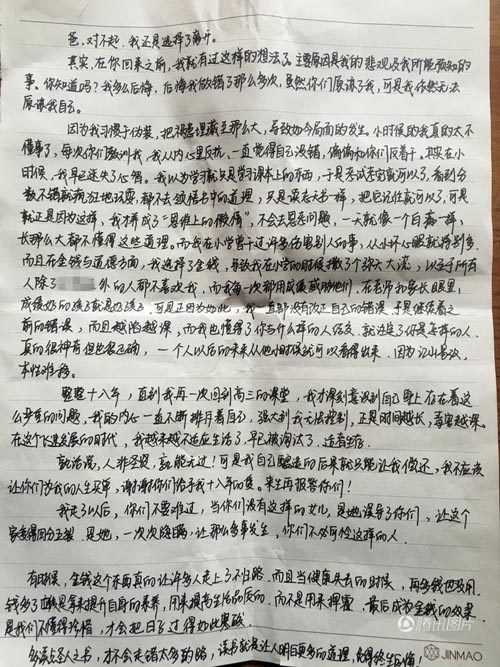 爸，对不起，我还是选择了离开。
其实，在你回来之前，我就有过这样的想法了。主要原因是我的悲观及我所能预知的
事。你知道吗？我多么后悔，后悔我做错了那么多次，虽然你们原谅了我，可是我依然无法
原谅我自己。
因为我习惯于伪装，把祸患埋藏至那么大，导致如今局面的发生。小时候的我真的太不
懂事了，每次你们教训我，我从内心里反抗，一直觉得自己没错，偏偏和你们反着干。其实在小
时候，我早已迷失了心智。我以为学习就只是学习课本上的东西，于是考试考完就可以了，看到分
数不错就疯狂地玩耍，都不去领悟书中的道理，只是读死书一样，把它记住就可以了，可是
就正是因为这样，我才成了"思维上的傲慢"，不会去思考问题，一天就像一个白痴一样，
长那么大都不懂得这些道理。而我在小学曾干过许多伤害别人的事，从小坏心眼就特别多，
而且在金钱与道德方面，我选择了金钱，导致我在小学的时候撒了个弥天大谎，以至于所有
人除了 外的人都不喜欢我，而我每一次都用成绩威胁他们，在老师和家长眼里，
成绩好的孩子就是好孩子，可是正因为如此，我一直都没有改正自己的错误，于是继续着之
前的错误，而且越陷越深，而我也懂得了你与什么样的人结交，就注定了你是怎样的人，
真的很神奇但也很正确，一个人以后的未来从他小时候就可以看得出来，因为江山易改，
本性难移。
整整十八年，直到我再一次回到高三的课堂，我才深刻意识到自己身上存在着这
么严重的问题，我的内心一直不断排斥着自己，强大到我无法控制，正是时间越长，毒害越深。
在这个飞速发展的时代，我越来越不适应生活了，早已被淘汰了，适者生存。
俗话说，人非圣贤，孰能无过！可是我自己酿造的后果就只能让我偿还，我不应该
让你们为我的人生买单，谢谢你们给予我十八年的爱。来生再报答你们！
我走了以后，你们不要难过，当你们没有这样的女儿，是她误导了你们，让这个
家变得四分五裂，是她，一次次隐瞒，让那么多事发生，你们不必可怜这样的人。
有时候，金钱这个东西真的让许多人走上了不归路，而且当健康失去的时候，再多钱也没用。
钱多了就是拿来提升自身的素养，用来提高生活的质的，而不是用来挥霍，最后成为金钱的奴隶。
是我们不懂得珍惜，才会把日子过得如此寒酸。
多读圣人之书，才不会走错太多的路，读书就是让人明白更多的道理，免得终生后悔。
JINMAO